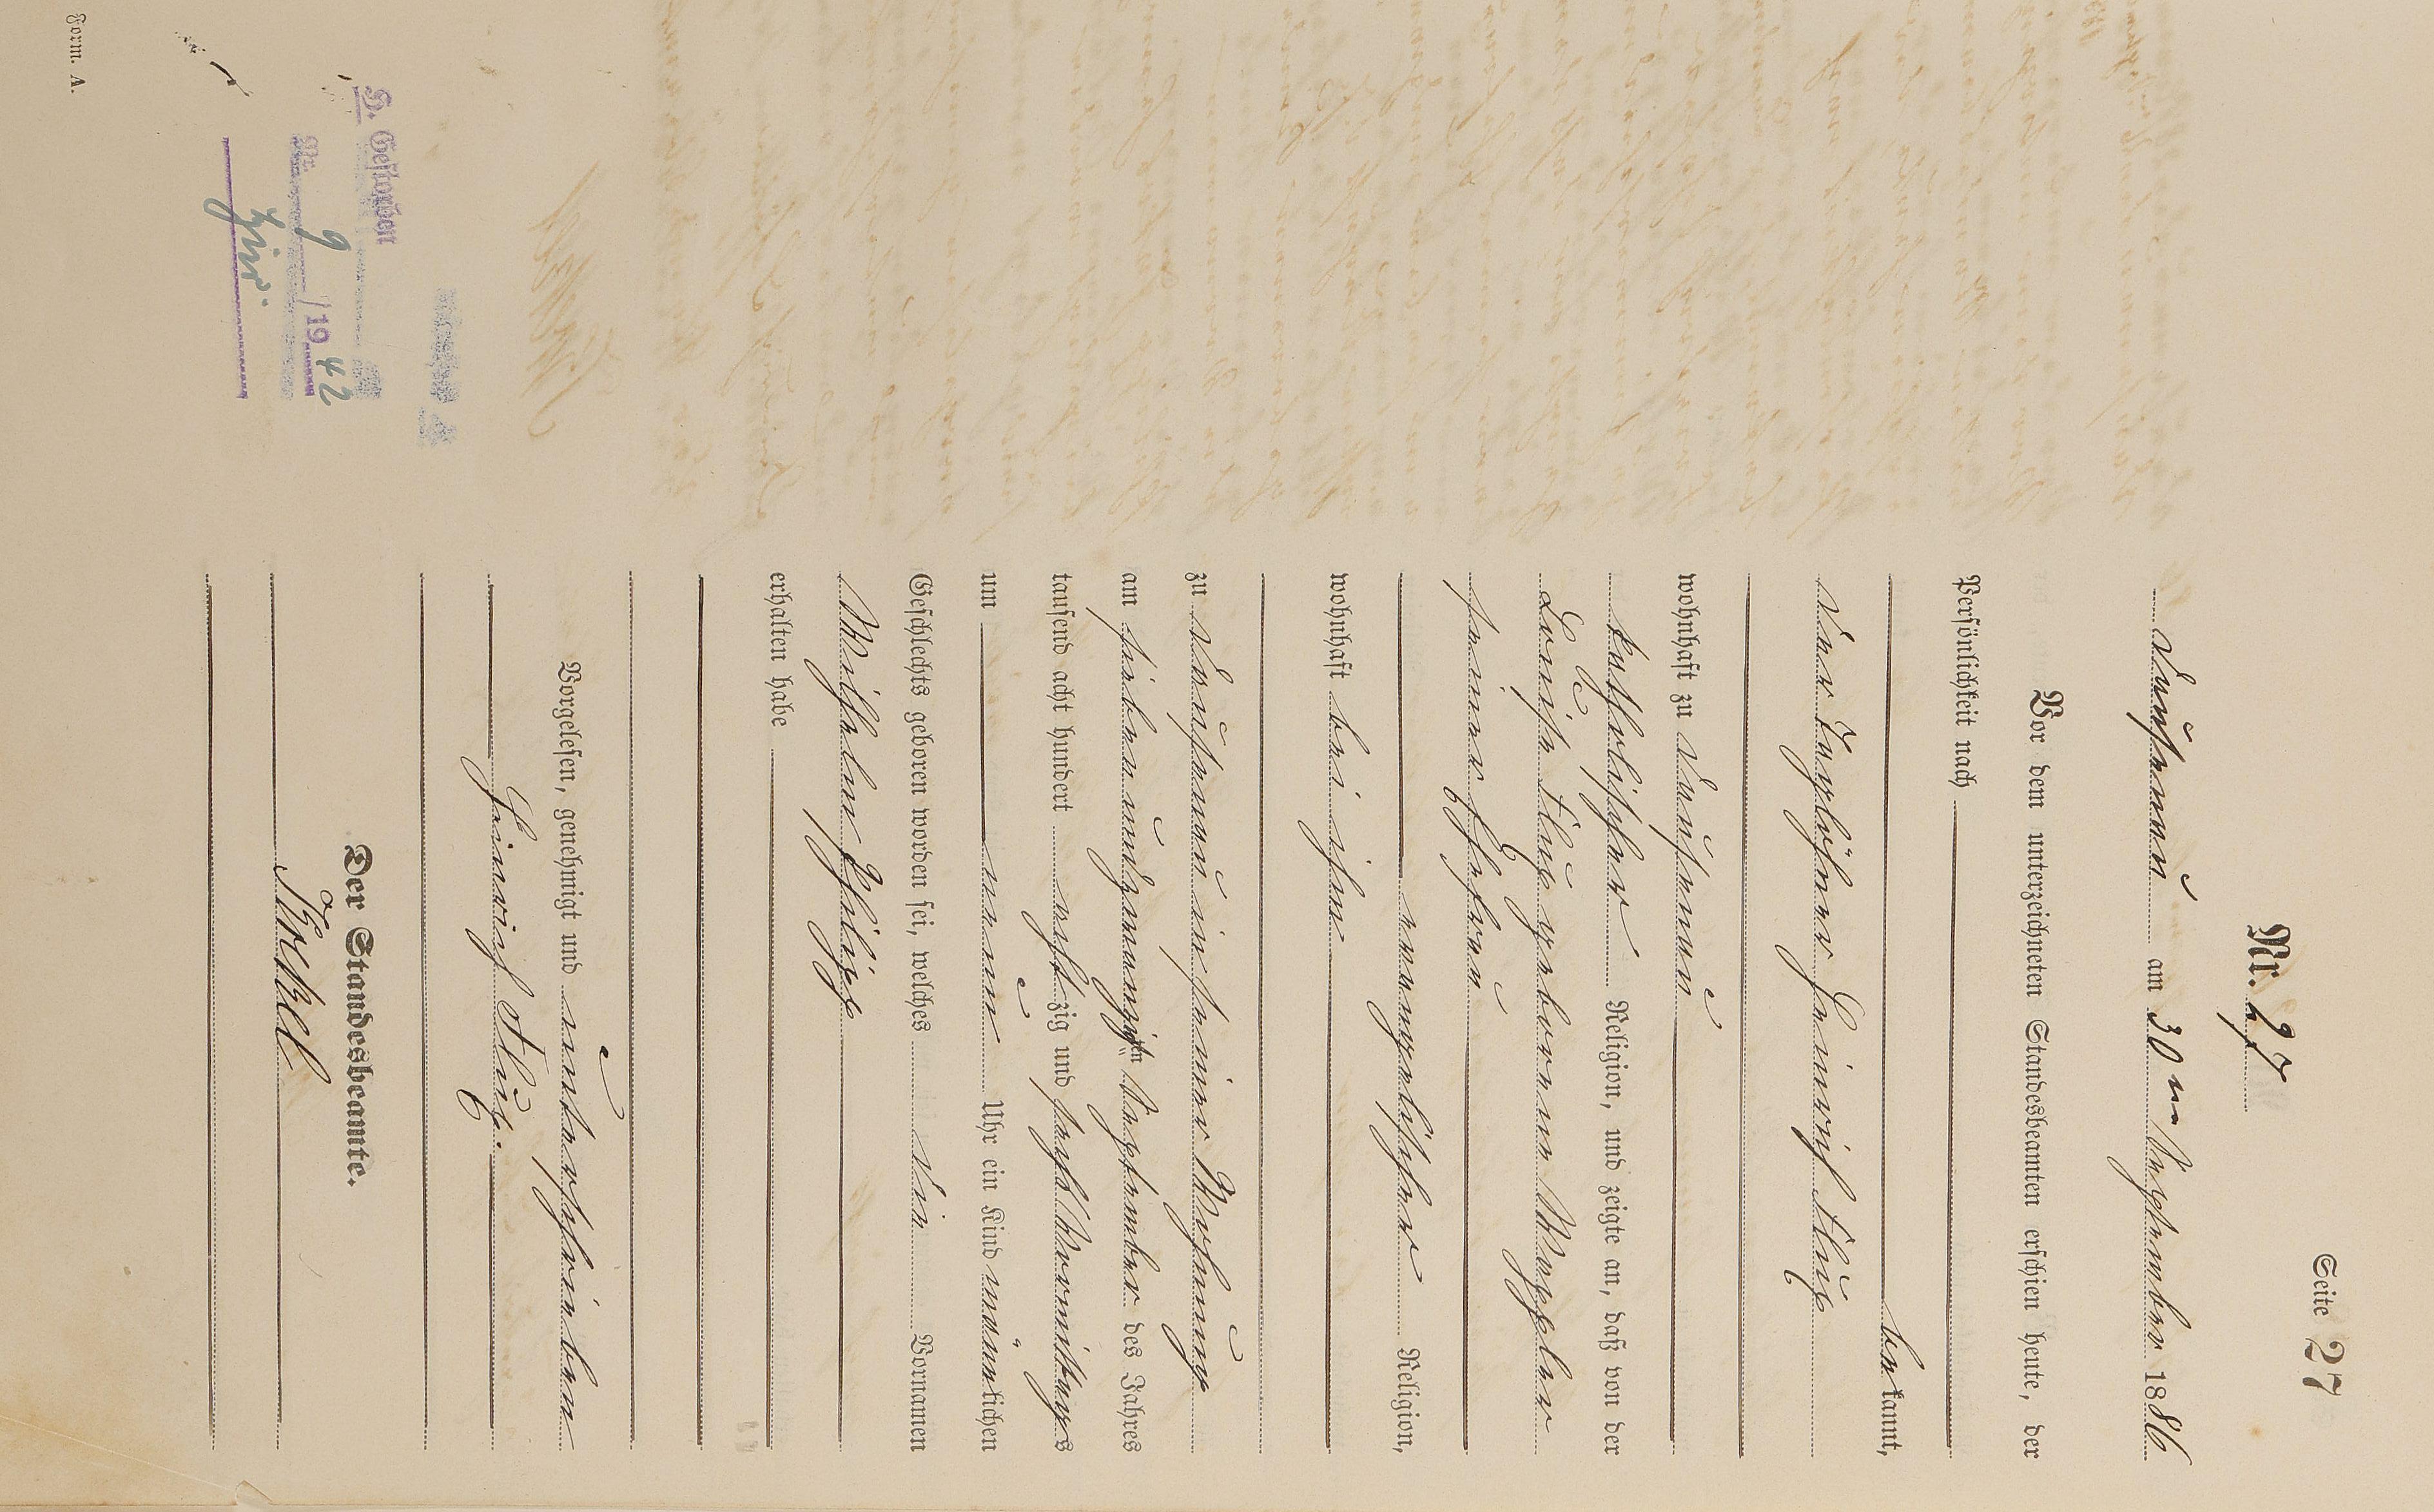 Seite 27
Nr. 27
Dausenau am 30ten September 1886
Vor dem unterzeichneten Standesbeamten erschien heute, der
Persönlichkeit nach
bekannt,
der Taglöhner Heinrich Klug
wohnhaft zu Dausenau
katholischer Religion, und zeigte an, daß von der
Louise Klug geborenen
seiner Ehefrau
evangelischer Religion,
wohnhaft bei ihm
zu Dausenau in seiner Wohnung
am sieben und zwanzigsten September des Jahres
tausend acht hundert achtzig und sechs Vormittags
um neun Uhr ein Kind männlichen
Geschlechts geboren worden sei, welches die Vornamen
Wilhelm Philipp
erhalten habe
Vorgelesen, genehmigt und unterschrieben
Heinrich Klug.
Der Standesbeamte.
D. Gestorben
Nr. 9 /1942
hier.
Form. A.